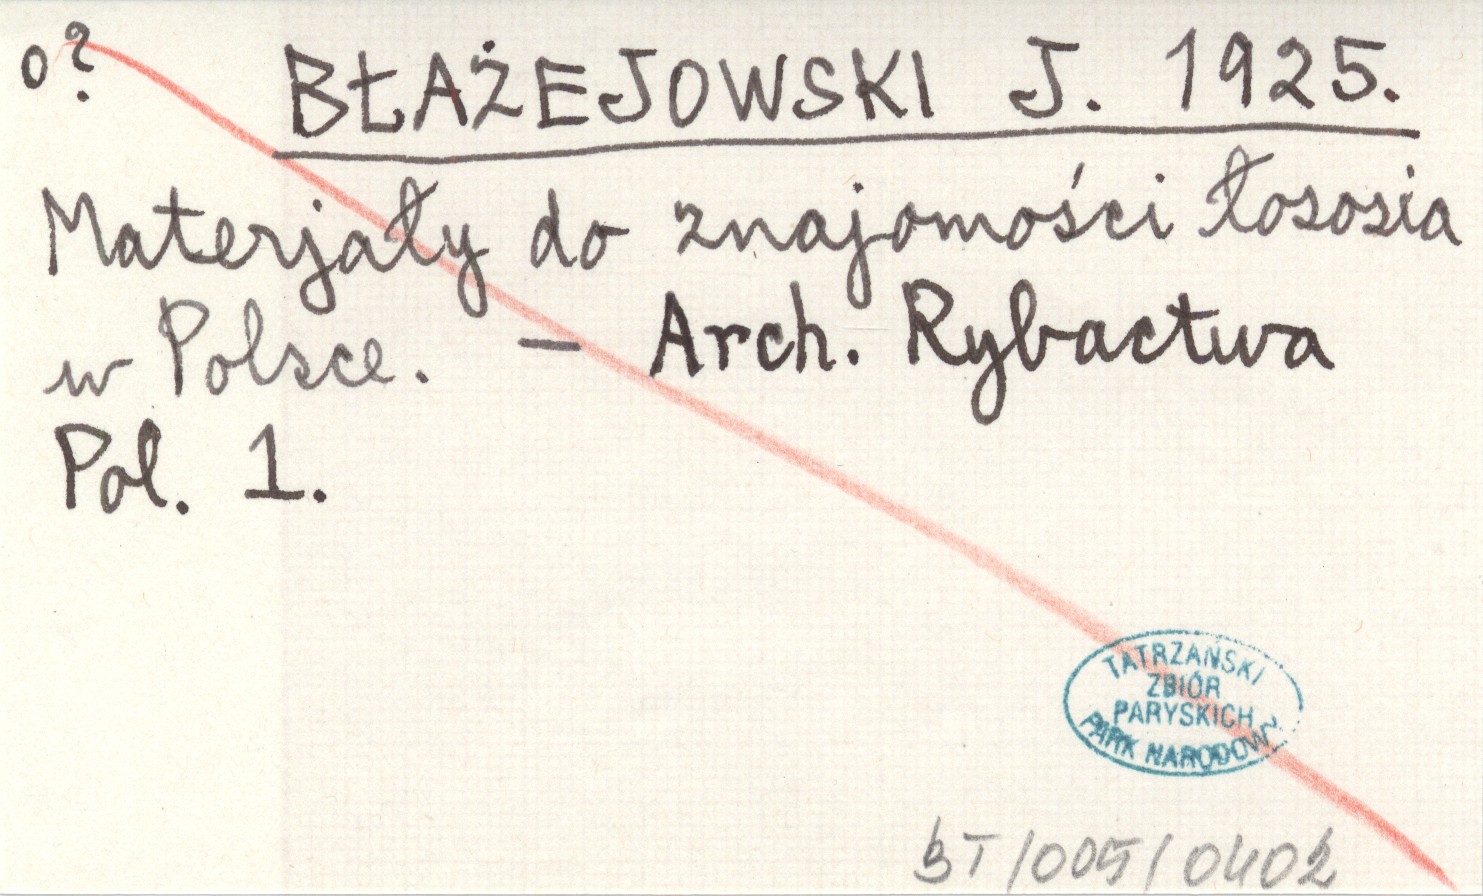 o?
BŁAŻEJOWSKI J. 1925.
Materjały do znajomości łososia
w Polsce. — Arch. Rybactwa
Pol. 1.
TATRZAŃSKI
ZBIÓR
PARYSKICH
PARK NARODOWY
BT/005/0402